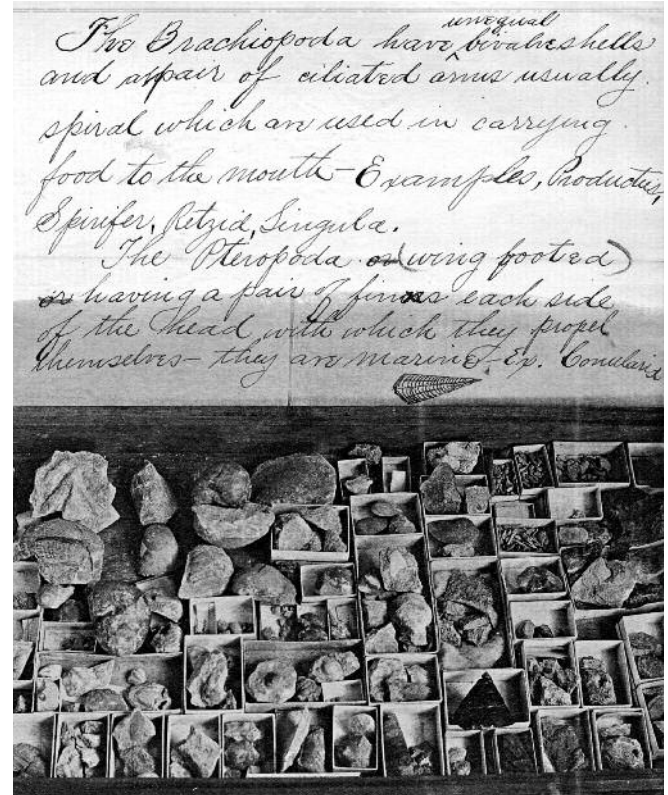 The Brachiopoda have unequal bivalve shells
and a pair of ciliated arms usually.
spiral which are used in carrying.
food to the mouth – Examples, Productus,
Spirifer, Retzid, Lingula.
The Pteropoda or (wing footed)
or having a pair of fins each side
of the head with which they propel
themselves – they are marine. Ex. Conularid